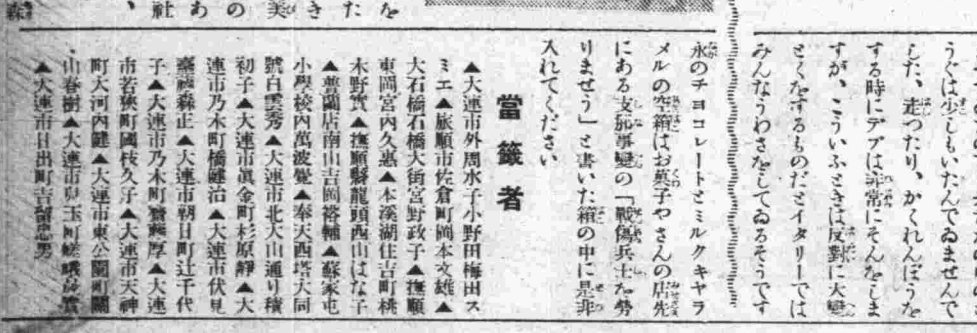 うぐは少しもいたんでゐませんで
した、走つたり、かくれんぼうを
する時にデブは非常にそんをしま
すが、こういふときは反對に大變
とくをするものだとイタリーでは
みんなうわさをしてゐるそうです
永のチヨコレートとミルクキヤラ
メルの空箱はお菓子やさんの店先
にある支那事變の「戰傷兵士を勞
りませう」と書いた箱の中に是非
入れてください
當籤者
▲大連市外周水子小野田梅田ス
ミエ▲旅順市佐倉町岡本文雄▲
大石橋石橋大街宮野政子▲撫順
東岡宮內久惠▲本溪湖住吉町桃
木野實▲撫順縣龍頭西山はな子
▲普蘭店南山吉岡裕輔▲蘇家屯
小學校內萬波覺▲奉天西塔大同
號白雲秀▲大連市北大山通り積
初子▲大連市眞金町杉原靜▲大
連市乃木町橋健治▲大連市伏見
臺森正▲大連市朝日町辻千代
子▲大連市乃木町齋藤厚▲大連
市若狹町國枝久子▲大連市天神
町大河內健▲大連市東公園町關
山春樹▲大連市兒玉町嵯峨
▲大連市日出町吉留忠男
を
た
き
美
の
あ
社
、
森